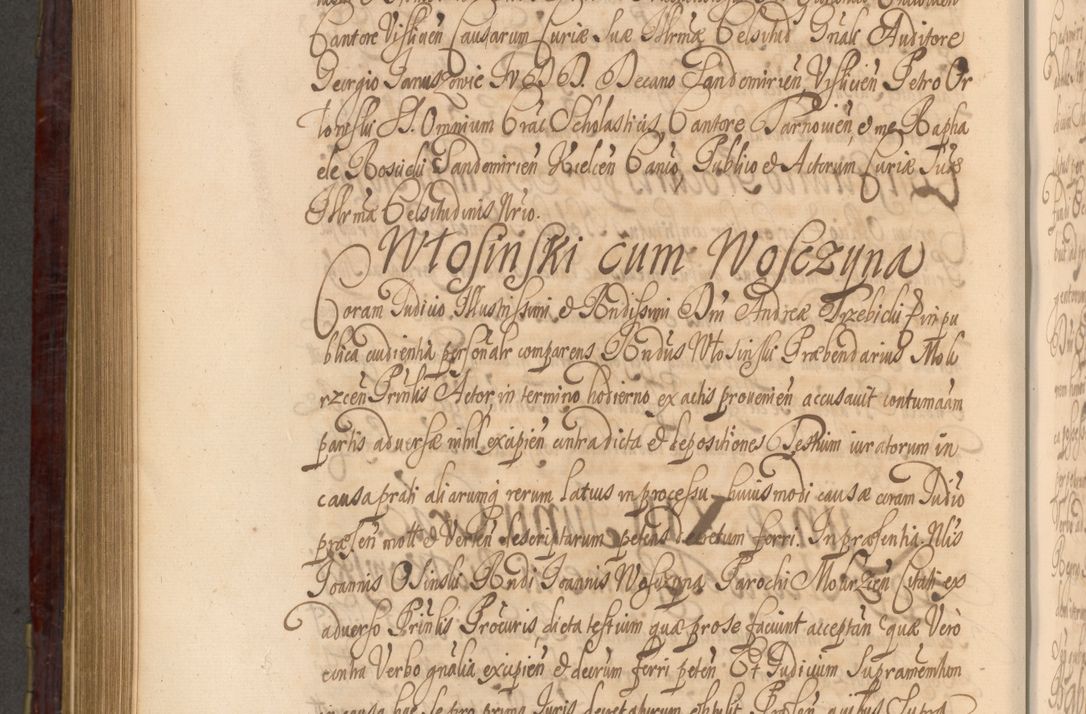 Cantore Visliceñ Causarum Curiæ Suæ Illrmæ Celsitud Gñali Auditore
Georgio Januszowic IVDD. Decano Sandomirieñ Visliceñ Petro Or
łoński SS. Omnium Crac Scholasticis, Cantore Tarnovieñ, et me Rapha
ele Rosicki Sandomirieñ Kielceñ Canco Publico et Actorum Curiæ Suæ
Illrmæ Celsitudinis Nrio.
Włosinski cum Wosczyna
Coram Judicio Illustrissimi et Rndissimi Dñi Andreæ Trzebicki in pu
blica audientia personalr comparens Rndus Włosinski Præbendarius Mok
rzceñ Prinlis Actor in termino hodierno ex actis provenieñ accusavit contumaam
partis adversæ nihil excipieñ contra dicta et depositiones Testium iuratorum in
causa præti aliarumq rerum latius in processu huiusmodi causæ coram Judio
præseñ mott et Verteñ descriptarum petens decretum ferri. In præsentia Nlis
Joannis Osinski Rndi Joannis Wosczyna Parochi Mokrzceñ Citati ex
adverso Prinlis Procuris dicta testium quæ pro se faciunt acceptañ quæ Vero
contra Verbo gnalia excipieñ et decrum ferri peteñ Et Judicium Supramentum